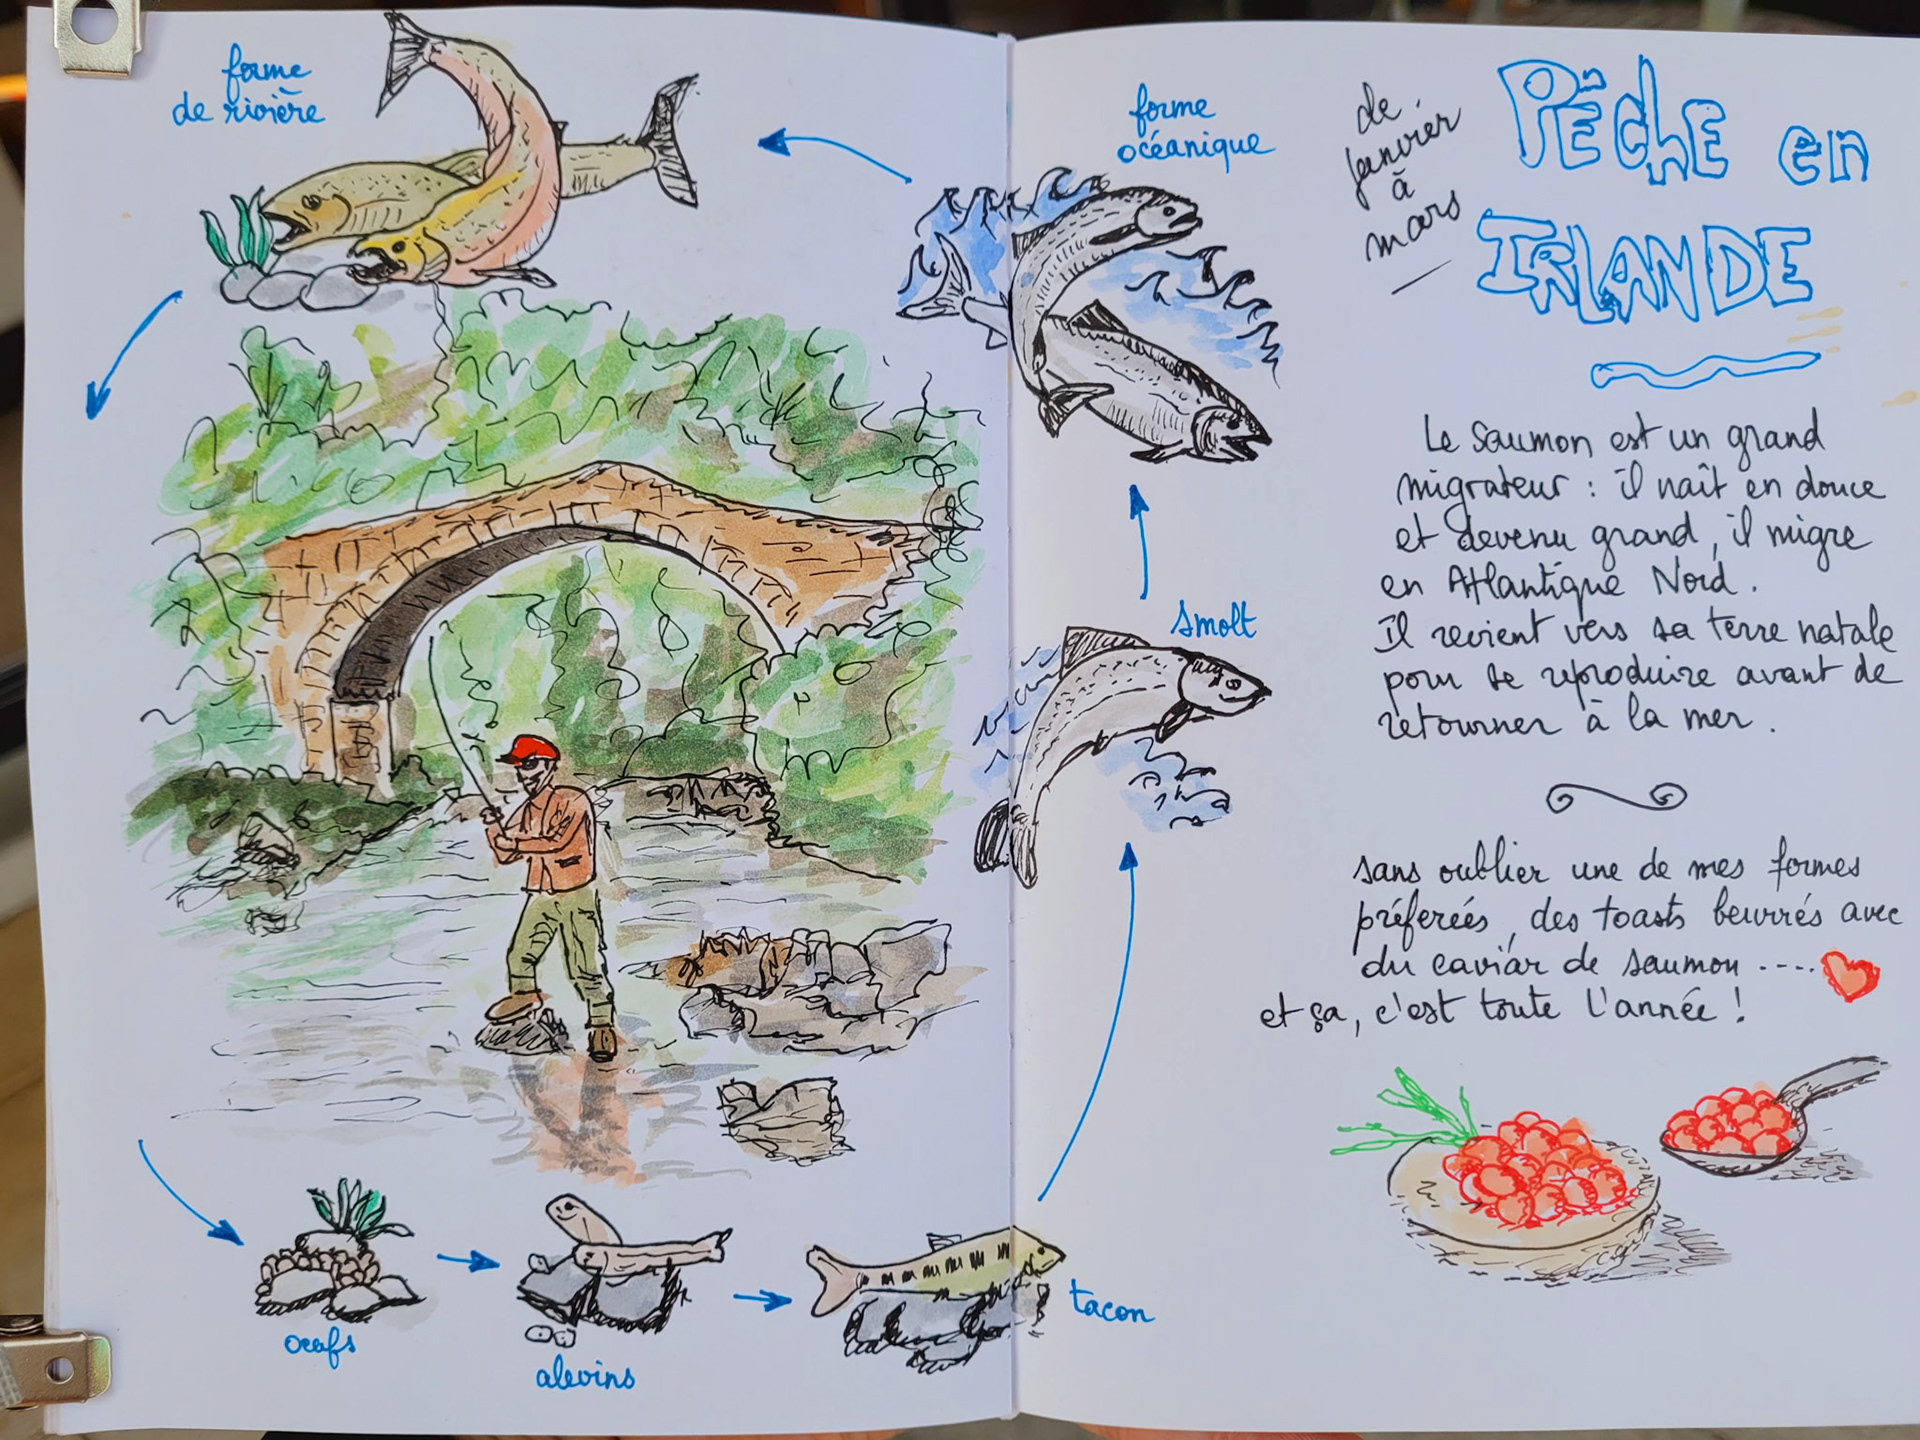 forme
de rivière
forme
océanique
de
janvier
à
mars
PÊChE en
IRLANDE
Le saumon est un grand
migrateur : il naît en douce
et devenu grand, il migre
en Atlantique Nord.
Il revient vers sa terre natale
pour se reproduire avant de
retourner à la mer.
smolt
sans oublier une de mes formes
préferées, des toasts beurrés avec
du caviar de saumon ....
et ça, c'est toute l'année !
œufs
alevins
tacon